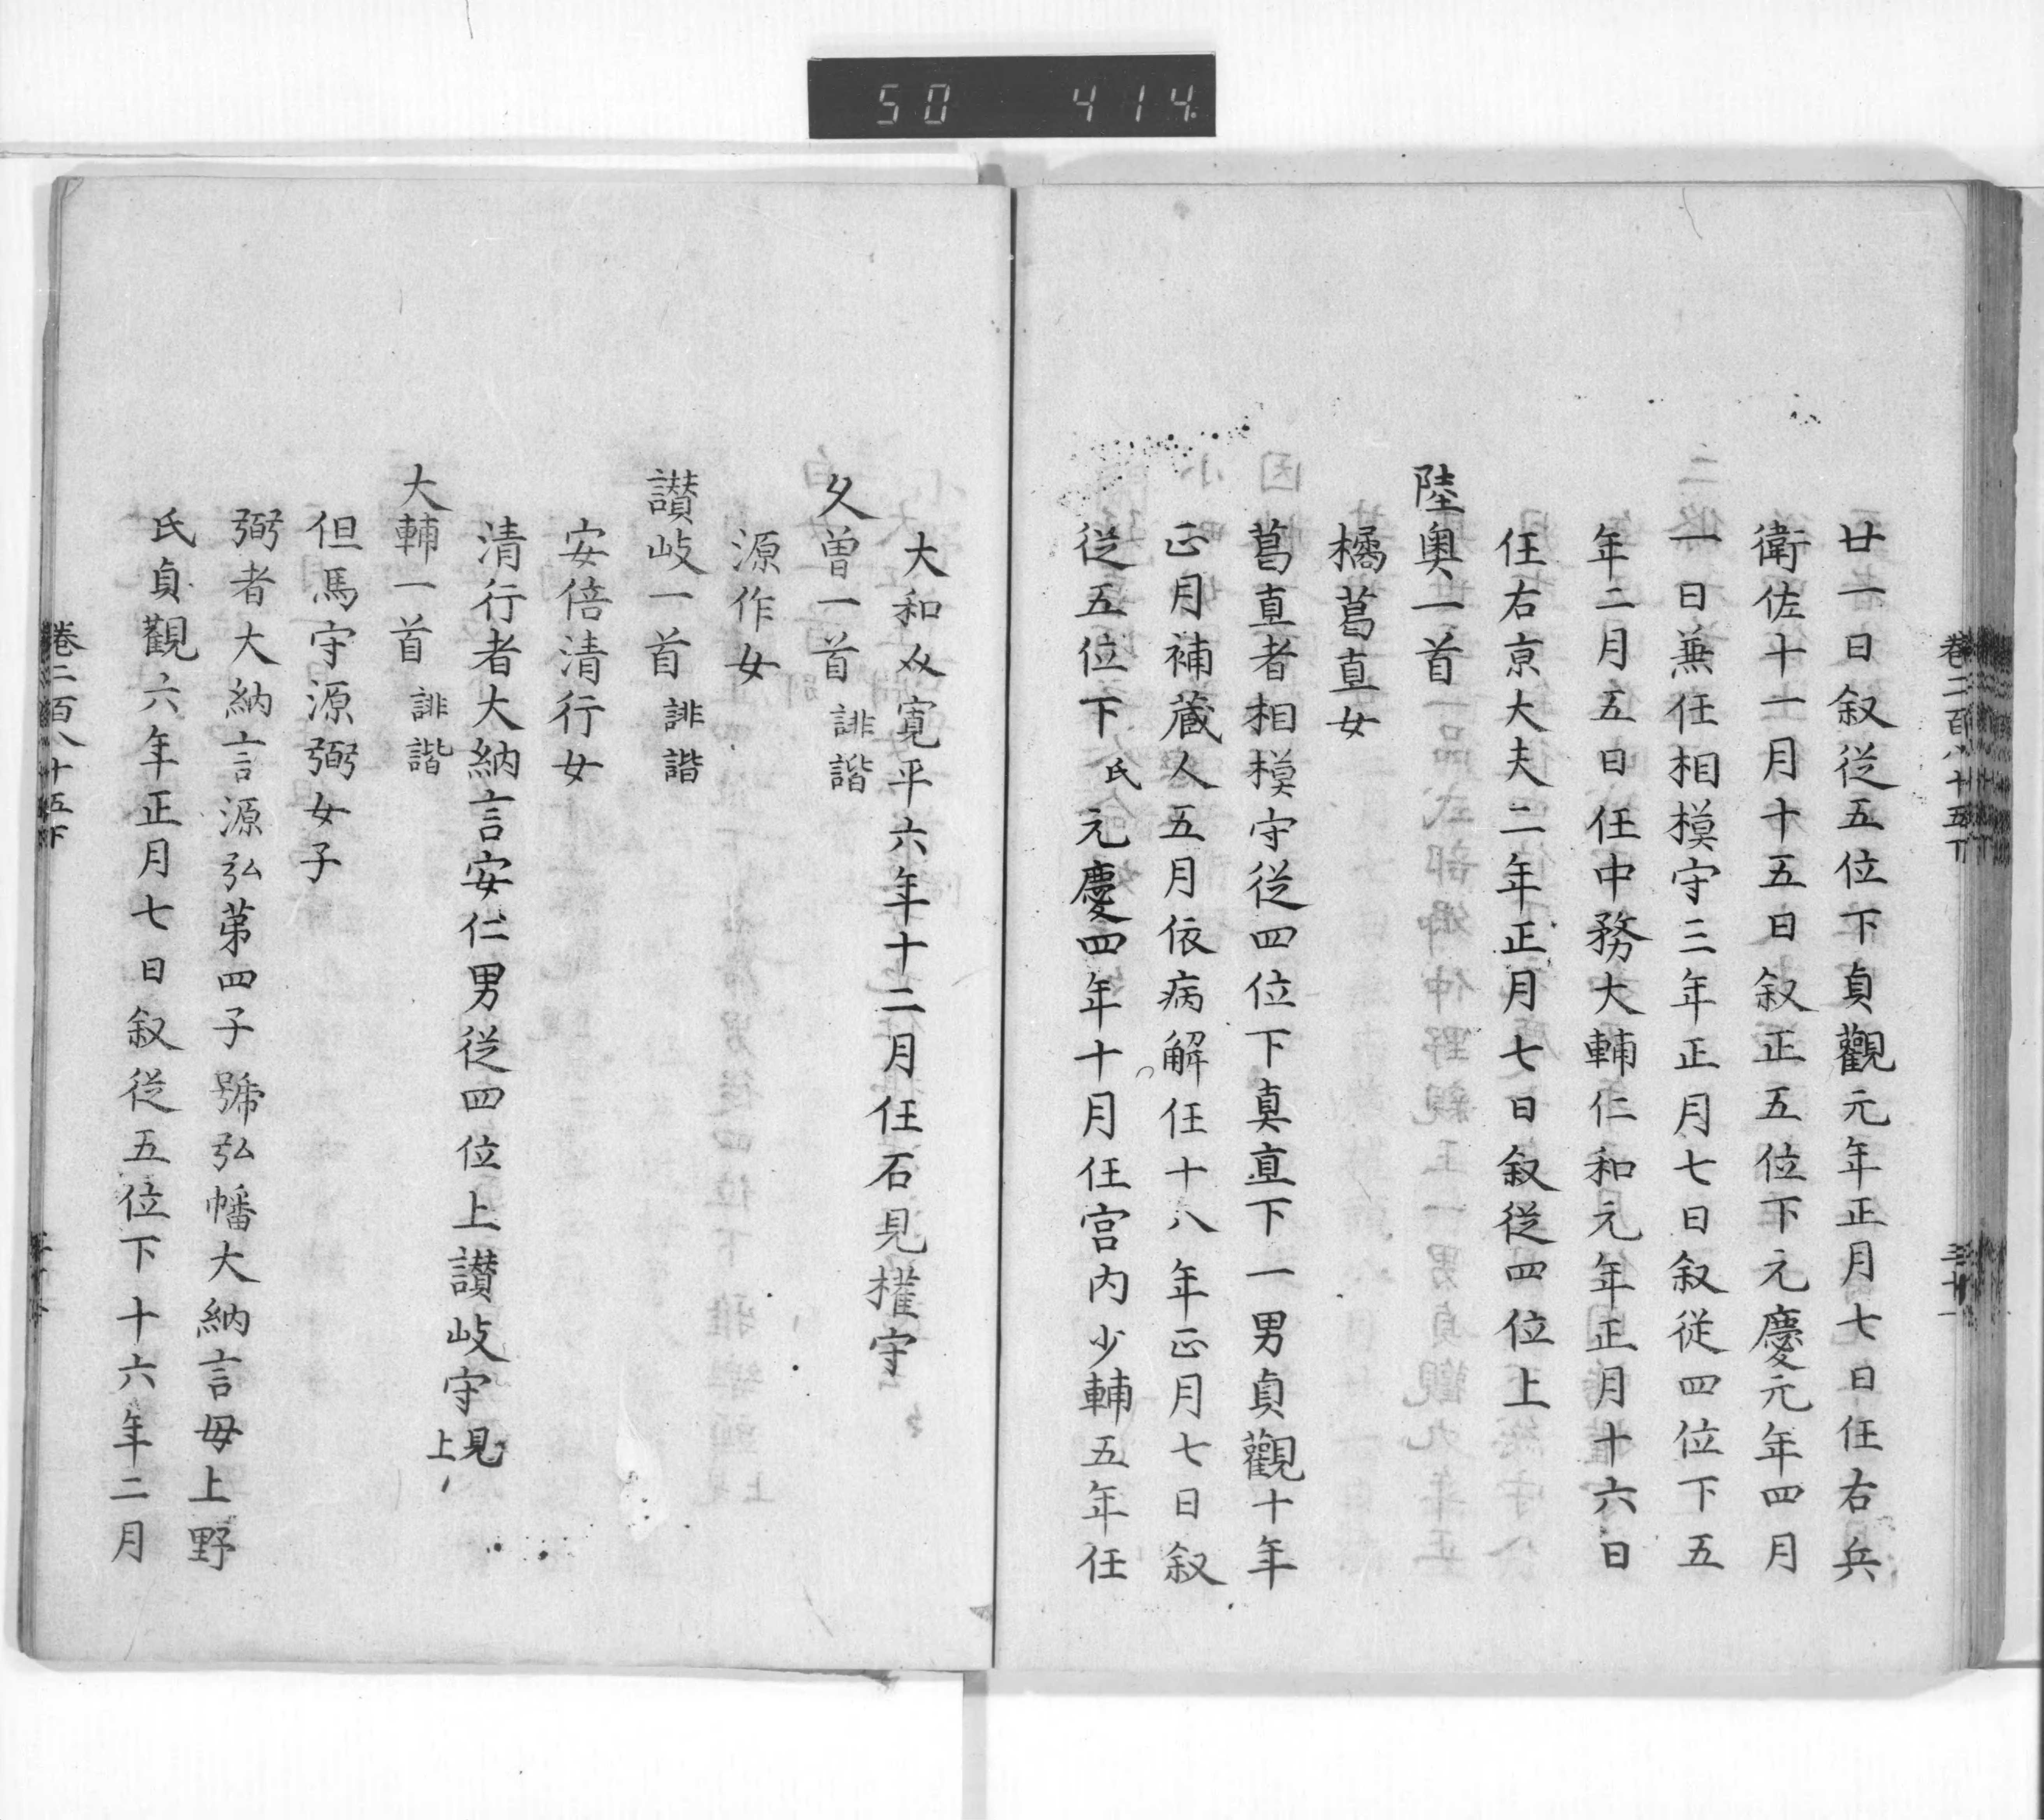 50 414
巻二百八十五下
三十一
廿一日叙従五位下貞觀元年正月七日任右兵
衛佐十一月十五日叙正五位下元慶元年四月
一日兼任相模守三年正月七日叙従四位下五
年二月五日任中務大輔仁和元年正月十六日
任右京大夫二年正月七日叙従四位上
陸奥一首
橘葛直女
葛直者相模守従四位下真直下一男貞觀十年
正月補蔵人五月依病解任十八年正月七日叙
従五位下氏元慶四年十月任宮内少輔五年任
大和介寛平六年十二月任石見権守
久曽一首 誹諧
源作女
讃岐一首 誹諧
安倍清行女
清行者大納言安仁男従四位上讃岐守見上
大輔一首 誹諧
但馬守源弼女子
弼者大納言源弘第四子號弘幡大納言母上野
氏貞觀六年正月七日叙従五位下十六年二月
巻二百八十五下